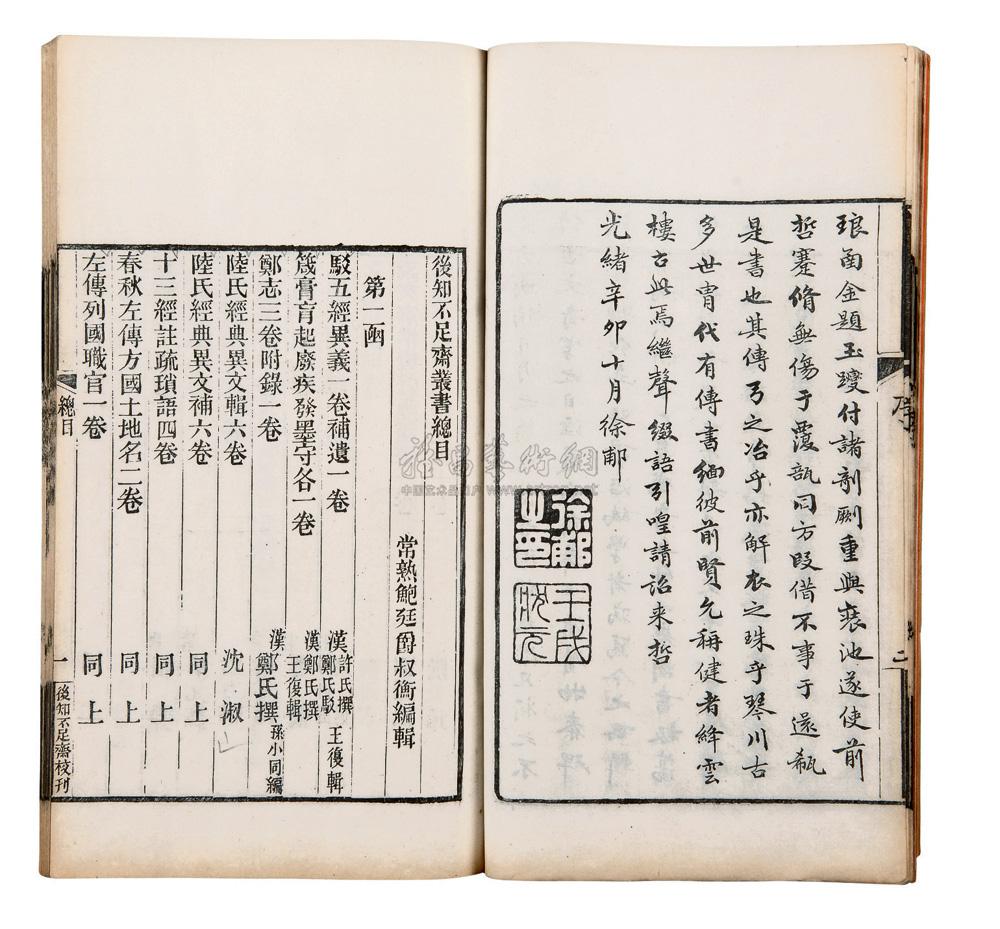 琅函金題玉躞付諸剞劂重與裝池遂使前
哲蹇脩無傷于覆瓿同方叚借不事于還瓻
是書也其傳弓之冶乎亦解衣之珠乎琴川古
多世胄代有傳書緬彼前賢允稱健者絳雲
樓古此焉繼聲綴語引喤請詒来哲
光緒辛卯十月徐郙
徐郙之印
壬戌狀元
序
二
後知不足齋叢書總目
常熟鮑廷爵叔衡編輯
第一函
駁五經異義一卷補遺一卷 漢許氏撰 鄭氏駁 王復輯
箴膏肓起廢疾發墨守各一卷 漢鄭氏撰 王復輯
鄭志三卷附錄一卷 漢鄭氏撰 孫小同編
陸氏經典異文輯六卷 沈淑
陸氏經典異文補六卷 同上
十三經註疏瑣語四卷 同上
春秋左傳方國土地名二卷 同上
左傳列國職官一卷 同上
總目
一
後知不足齋校刊